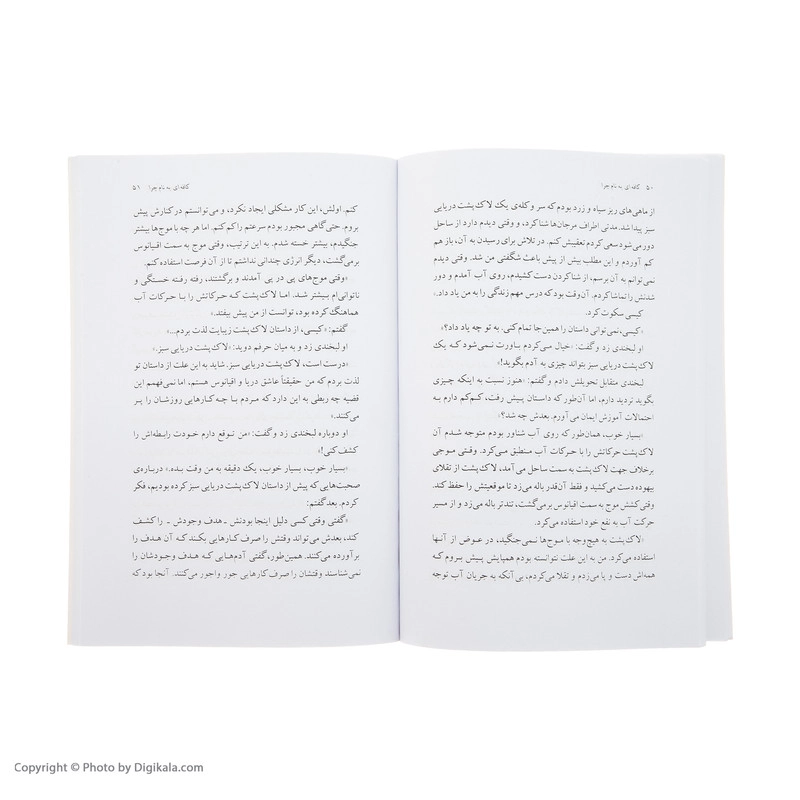 ۵۰ کافه‌ای به نام چرا
از ماهی‌های ریز سیاه و زرد بودم که سر و کله‌ی یک لاک‌پشت دریایی
سبز پیدا شد. مدتی اطراف مرجان‌ها شنا کرد، و وقتی دیدم دارد از ساحل
دور می‌شود سعی کردم تعقیبش کنم. در تلاش برای رسیدن به آن، باز هم
کم آوردم و این مطلب بیش از پیش باعث شگفتی من شد. وقتی دیدم
نمی‌توانم به آن برسم، از شنا کردن دست کشیدم، روی آب آمدم و دور
شدنش را تماشا کردم. آن‌وقت بود که درس مهم زندگی را به من یاد داد.»
کیسی سکوت کرد.
«کیسی، نمی‌توانی داستان را همین‌جا تمام کنی. به تو چه یاد داد؟»
او لبخندی زد و گفت: «خیال می‌کردم باورت نمی‌شود که یک
لاک‌پشت دریایی سبز بتواند چیزی به آدم بگوید!»
لبخندی متقابل تحویلش دادم و گفتم: «هنوز نسبت به اینکه چیزی
بگوید تردید دارم، اما آن‌طور که داستان پیش رفت، کم‌کم دارم به
احتمالات آموزش ایمان می‌آورم. بعدش چه شد؟»
«بسیار خوب، همان‌طور که روی آب شناور بودم متوجه شدم آن
لاک‌پشت حرکاتش را با حرکات آب منطبق می‌کرد. وقتی موجی
برخلاف جهت لاک‌پشت به سمت ساحل می‌آمد، لاک‌پشت از تقلای
بیهوده دست می‌کشید و فقط آن‌قدر باله می‌زد تا موقعیتش را حفظ کند.
وقتی کشش موج به سمت اقیانوس برمی‌گشت، تندتر باله می‌زد و از مسیر
حرکت آب به نفع خود استفاده می‌کرد.
«لاک‌پشت به هیچ‌وجه با موج‌ها نمی‌جنگید، در عوض از آنها
استفاده می‌کرد. من به این علت نتوانسته بودم همپایش پیش بروم که
همه‌اش دست و پا می‌زدم و تقلا می‌کردم، بی‌آنکه به جریان آب توجه
کافه‌ای به نام چرا ۵۱
کنم. اولش، این کار مشکلی ایجاد نکرد، و می‌توانستم در کنارش پیش
بروم. حتی گاهی مجبور بودم سرعتم را کم کنم. اما هر چه با موج‌ها بیشتر
جنگیدم، بیشتر خسته شدم. به این ترتیب، وقتی موج به سمت اقیانوس
برمی‌گشت، دیگر انرژی چندانی نداشتم تا از آن فرصت استفاده کنم.
«وقتی موج‌های پی در پی آمدند و برگشتند، رفته رفته خستگی و
ناتوانی‌ام بیشتر شد. اما لاک‌پشت که حرکاتش را با حرکات آب
هماهنگ کرده بود، توانست از من پیش بیفتد.»
گفتم: «کیسی، از داستان لاک‌پشت زیبایت لذت بردم...»
او لبخندی زد و به میان حرفم دوید: «لاک‌پشت دریایی سبز.»
«درست است، لاک‌پشت دریایی سبز. شاید به این علت از داستان تو
لذت بردم که من حقیقتاً عاشق دریا و اقیانوس هستم، اما نمی‌فهمم این
قضیه چه ربطی به این دارد که مردم با چه کارهایی روزشان را پر
می‌کنند.»
او دوباره لبخندی زد و گفت: «من توقع دارم خودت رابطه‌اش را
کشف کنی!»
«بسیار خوب، بسیار خوب، یک دقیقه به من وقت بده.» درباره‌ی
صحبت‌هایی که پیش از داستان لاک‌پشت دریایی سبز کرده بودیم، فکر
کردم. بعد گفتم:
«گفتی وقتی کسی دلیل اینجا بودنش ـ هدف وجودش ـ را کشف
کند، بعدش می‌تواند وقتش را صرف کارهایی بکند که آن هدف را
برآورده می‌کنند. همین‌طور، گفتی آدم‌هایی که هدف وجودشان را
نمی‌شناسند وقتشان را صرف کارهایی جور واجور می‌کنند. آنجا بود که
Copyright © Photo by Digikala.com